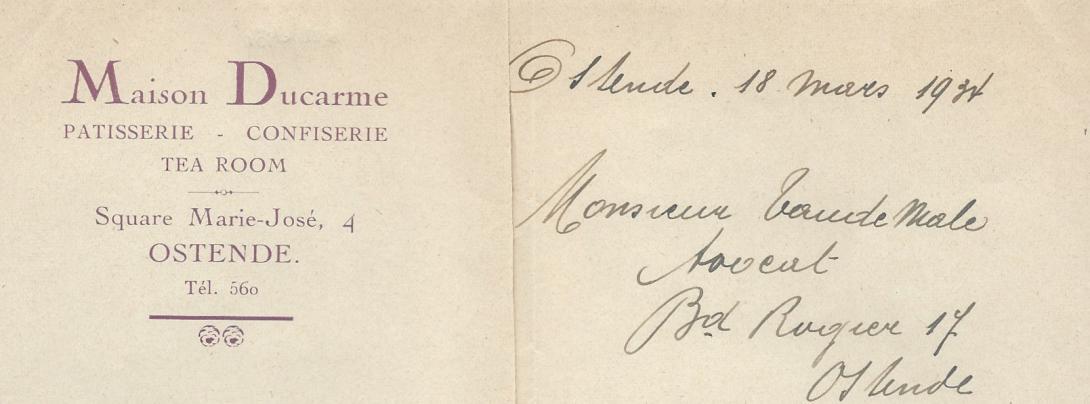 Maison Ducarme
PATISSERIE - CONFISERIE
TEA ROOM
Square Marie-José, 4
OSTENDE.
Tél. 560
Ostende. 18 mars 1934
Monsieur VandeMale
Avocat
Bd Rogier 17
Ostende